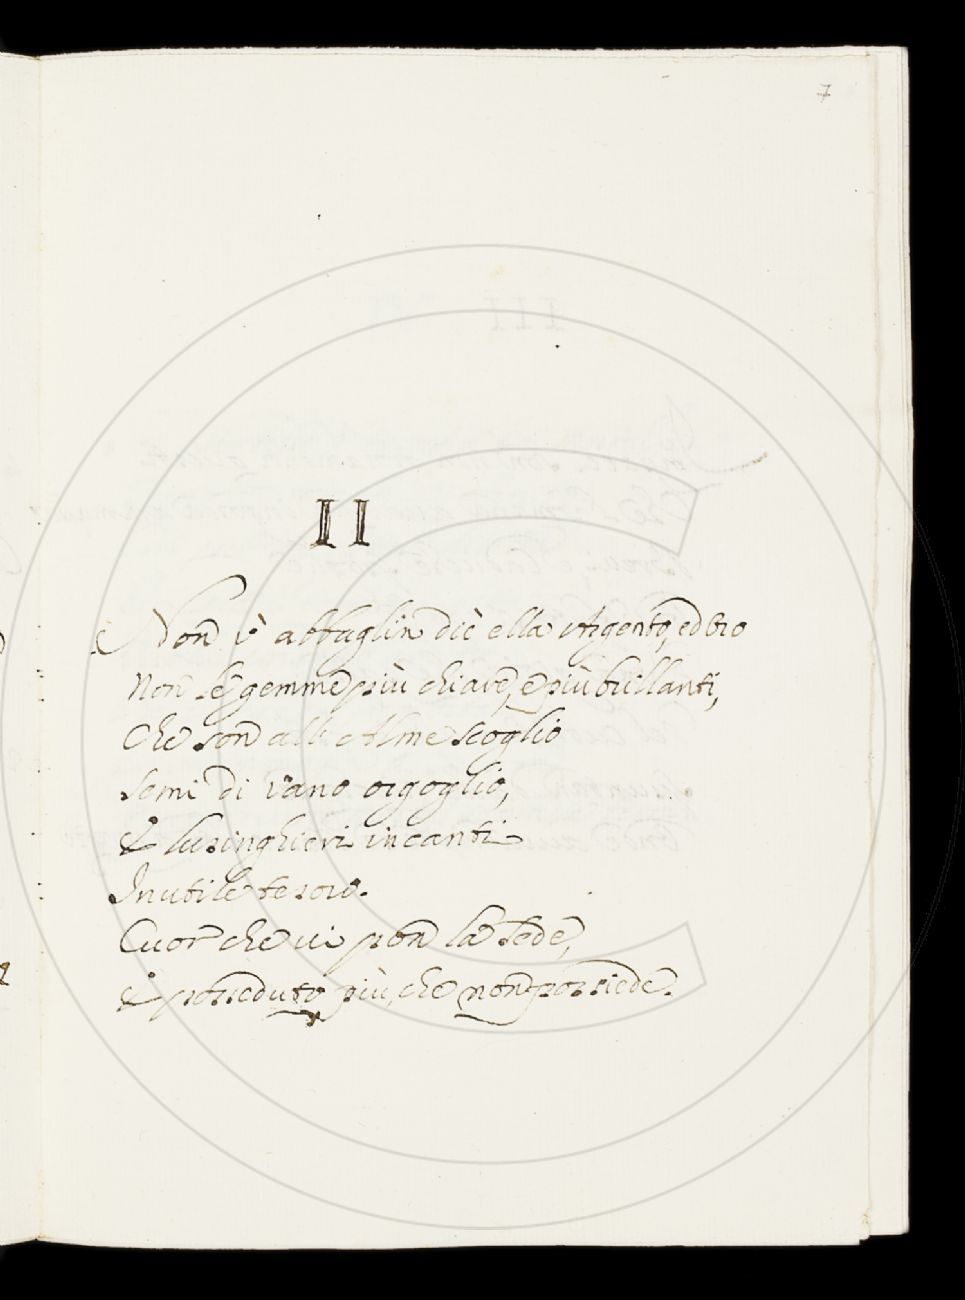 7
II
Non v'abbaglin diè ella Argento, ed Oro
Non le gemme più chiare, e più brillanti,
Che son all Alme scoglio
Semi di vano orgoglio,
E lusinghieri incanti
Inutile tesoro.
Cuor che vi pon la sede,
E posseduto più, che non possiede.